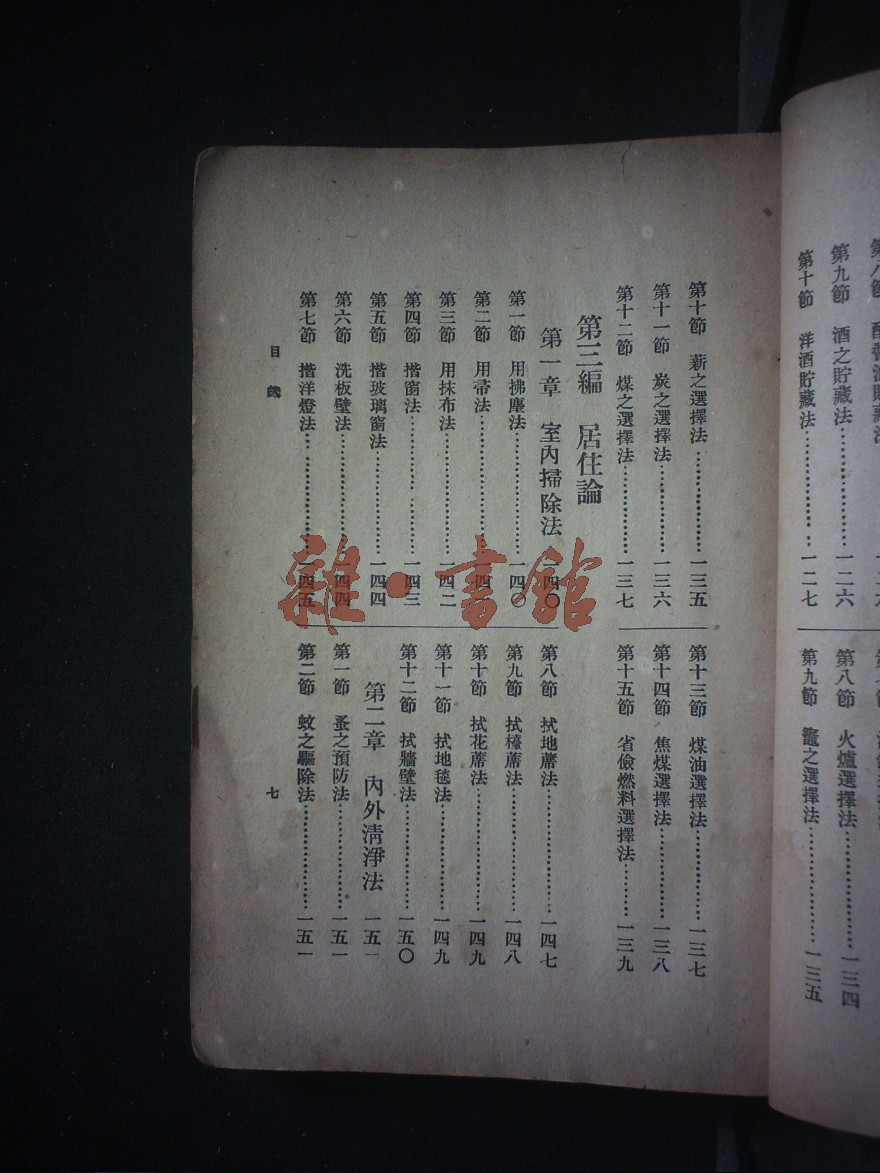 第九節 酒之貯藏法……一二六
第十節 洋酒貯藏法……一二七
第八節 火爐選擇法……一三四
第九節 竈之選擇法……一三五
第十節 薪之選擇法……一三五
第十一節 炭之選擇法……一三六
第十二節 煤之選擇法……一三七
第三編 居住論
第一章 室內掃除法 一四〇
第一節 用拂塵法……一四〇
第二節 用帚法……一四
第三節 用抹布法……一四二
第四節 揩窗法……一四三
第五節 揩玻璃窗法……一四四
第六節 洗板壁法……一四四
第七節 揩洋燈法……一四五
第十三節 煤油選擇法……一三七
第十四節 焦煤選擇法……一三八
第十五節 省儉燃料選擇法……一三九
第八節 拭地蓆法……一四七
第九節 拭檯蓆法……一四八
第十節 拭花蓆法……一四九
第十一節 拭地毯法……一四九
第十二節 拭牆壁法……一五〇
第二章 內外淸淨法 一五一
第一節 蚤之預防法……一五一
第二節 蚊之驅除法……一五一
目錄
七
雜·書館